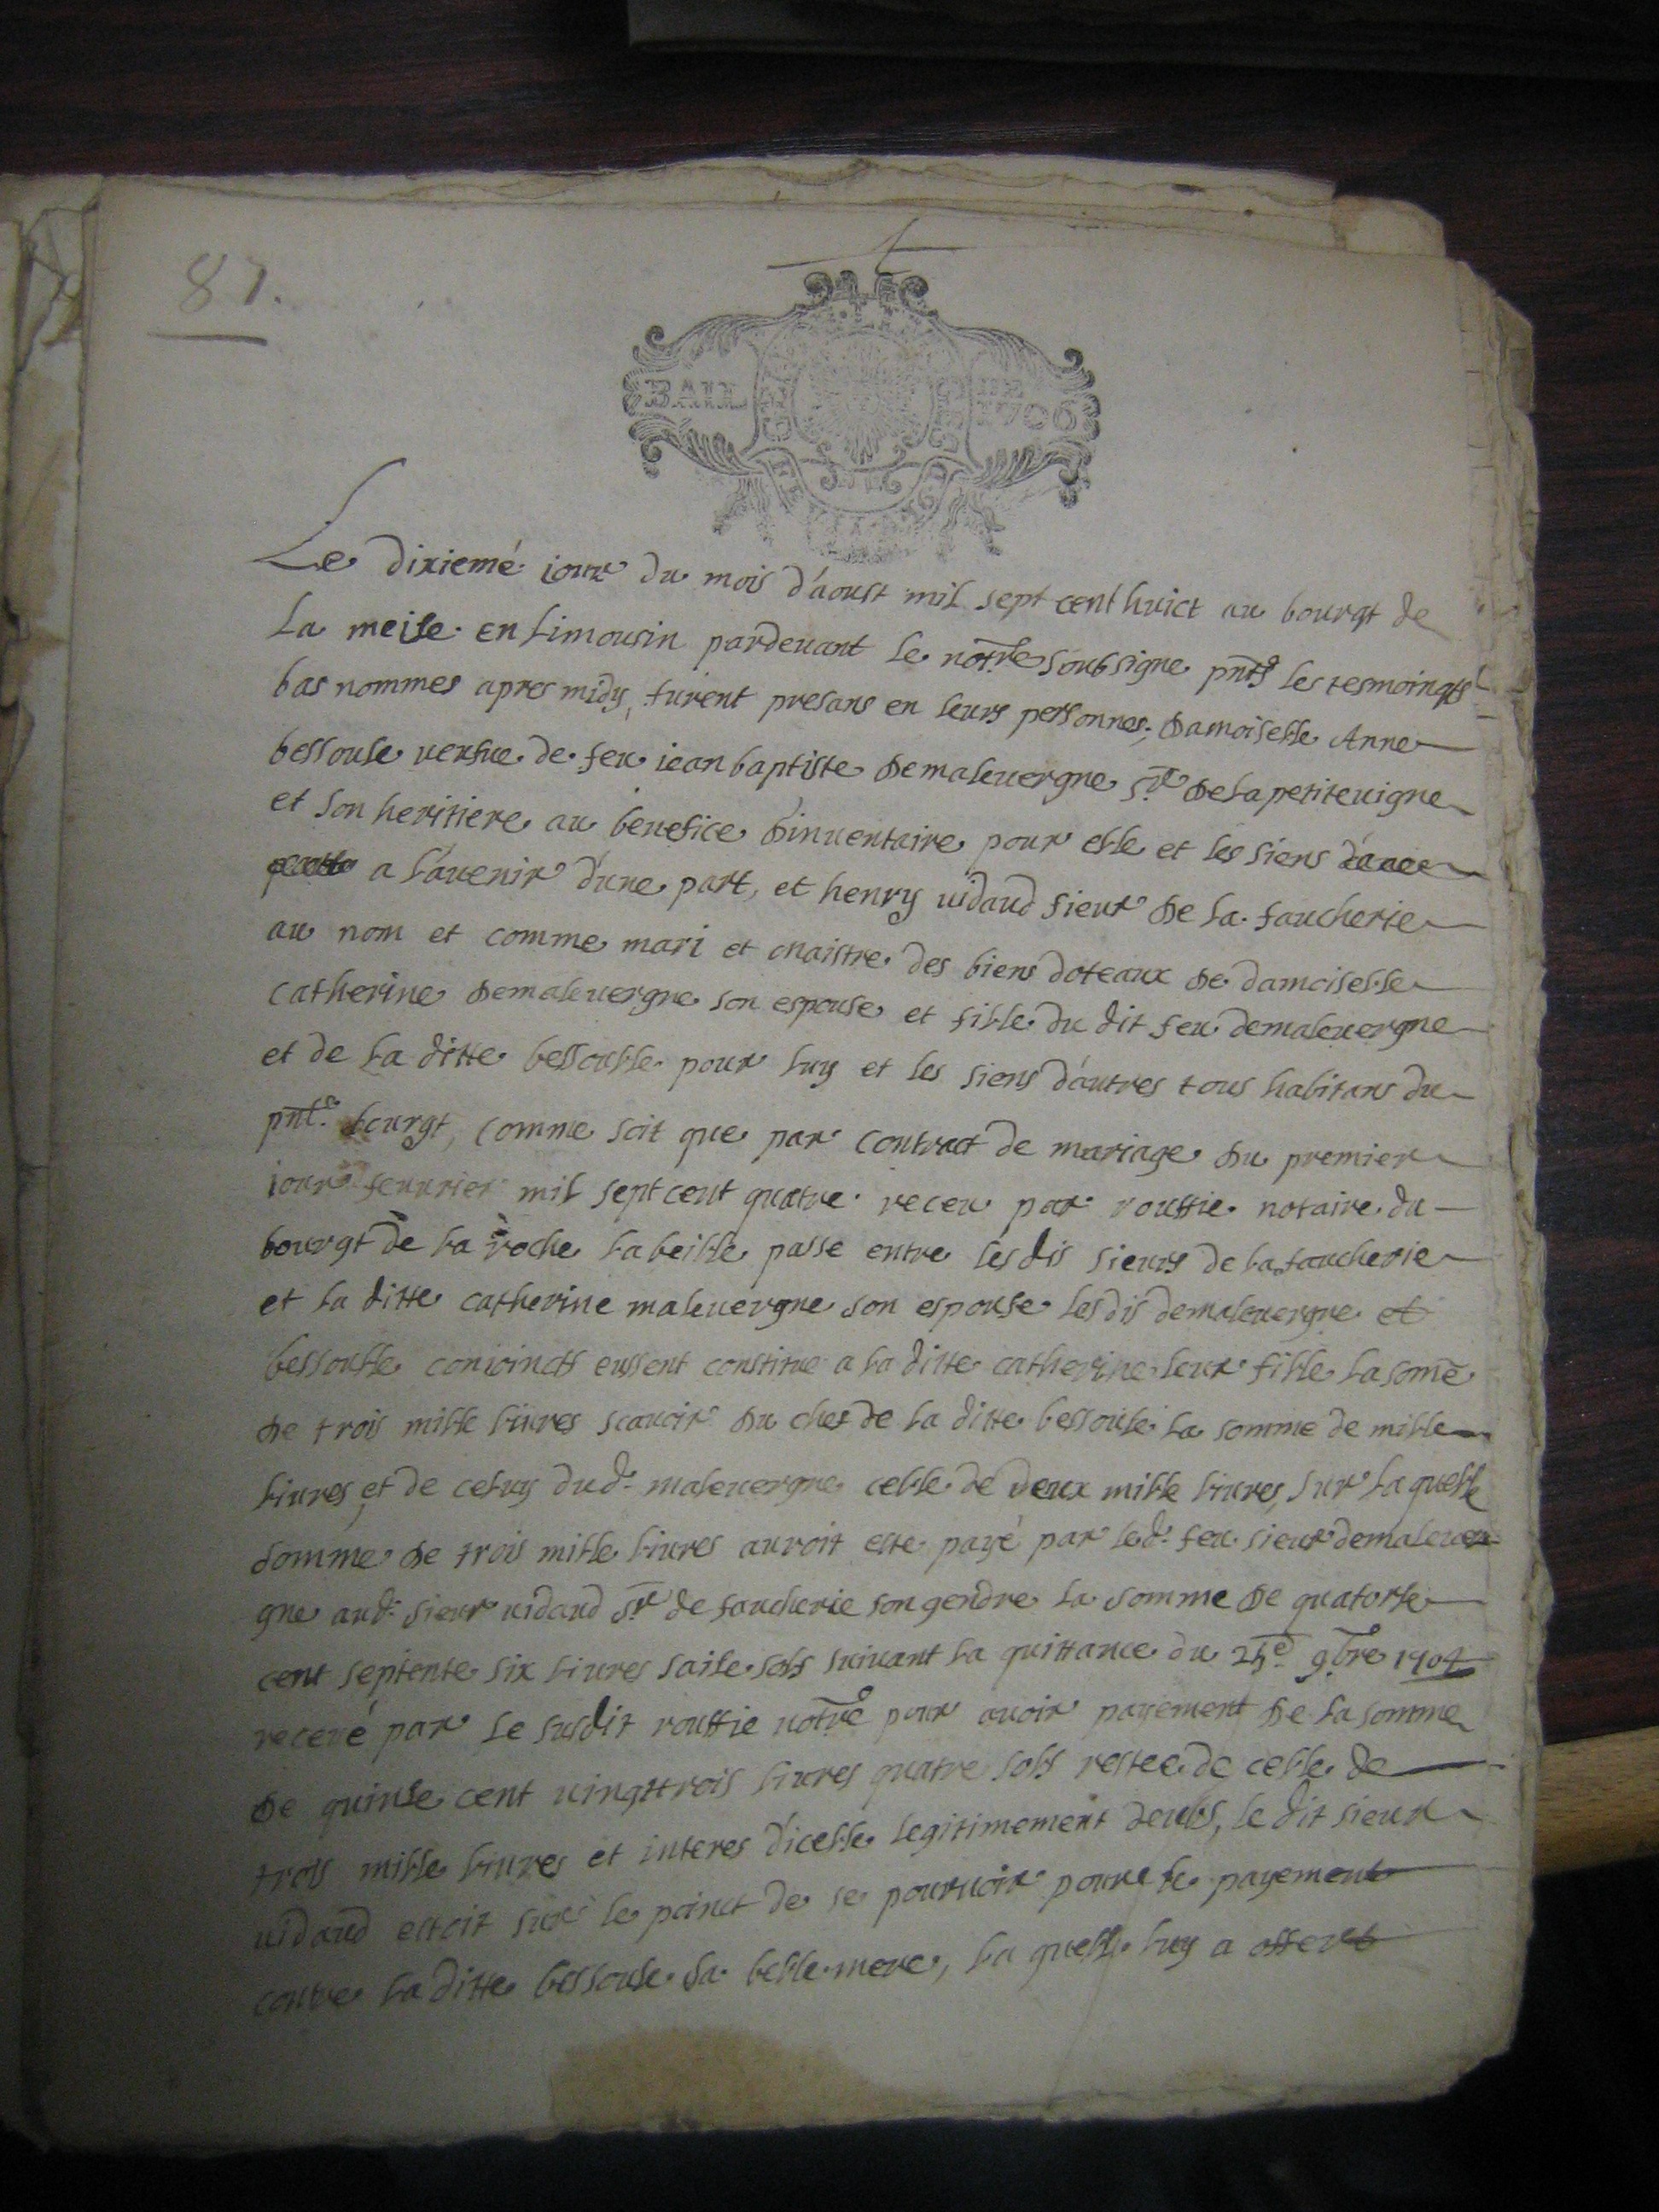 81.
BAIL
1706
Le dixiemé iour du mois d'áoust mil sept cent huict au bourgt de
La meise en Limousin pardeuant le notre soubsigne pnts les tesmoingts
bas nommes apres midy, furent presans en leurs personnes, Damoiselle Anne
bessoule uerfue de feu iean baptiste Demaleuergne sr De la petite uigne
et son heritiere au benefice D'inuentaire pour elle et les siens
a l'auenir d'une part, et henry uidaud sieur De la faucherie
au nom et comme mari et maistre des biens doteaux De damoiselle
catherine Demaleuergne son espouse et fille du dit feu demaleuergne
et de la ditte bessoulle pour luy et les siens d'autres tous habitans du
pnt bourgt, comme soit que par contract de mariage Du premier
iour feuurier mil sept cent quatre receu par rouffie notaire du
bourgt de la roche labeille passe entre les dis sieurs de la faucherie
et la ditte catherine maleuergne son espouse les dis demaleuergne et
bessoulle conioincts eussent constitue a la ditte catherine leur fille la some
De trois mille liures scauoir Du chef de la ditte bessoule la somme de mille
liures, et de celuy dud. maleuergne celle de deux mille liures, sur la quelle
somme De trois mille liures auroit este payé par led. feu sieur demaleuer
gne aud. sieur uidaud sr de faucherie son gendre la somme De quatorse
cent septente six liures saise sols suiuant la quittance du 25e 9bre 1704
receué par le susdit rouffie notre pour auoir payement De la somme
De quinse cent uingttrois liures quatre sols restee de celle de
trois mille liures et interes d'icelle legitimement deubs, le dit sieur
uidaud estoit sur le poinct de se pouruoir pour le payement
contre la ditte bessoule sa belle mere, la quelle luy a offert